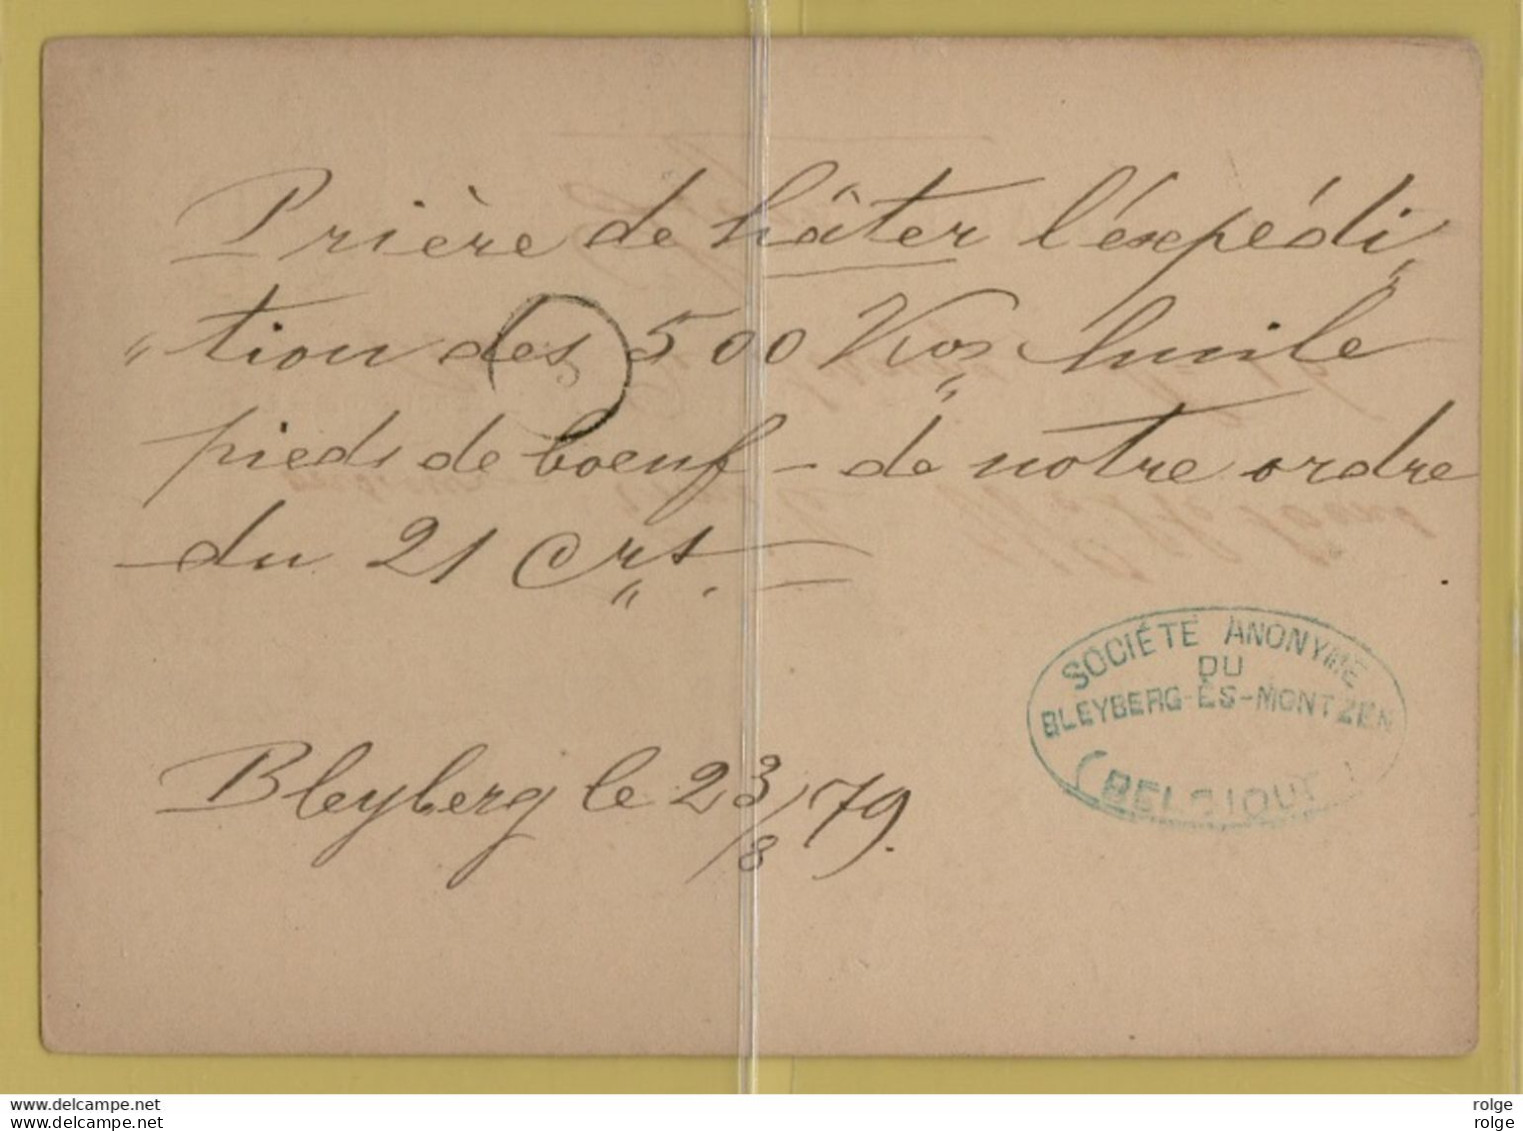 Prière de hâter l'éxpédi„
„tion des 500 Kos„ huile
pieds de boeuf – de notre ordre
du 21 Crt.
SOCIÉTÉ ANONYME
DU
BLEYBERG-ÈS-MONTZEN
(BELGIQUE)
Bleyberg le 23/8 79.
www.delcampe.net
www.delcampe.net
rolge
rolge